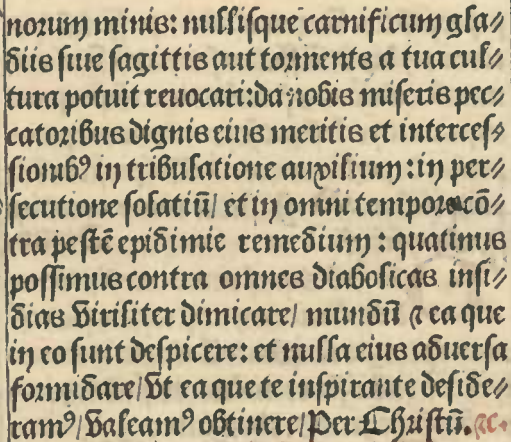 norum minis: nullisque carnificum gla⸗
diis siue sagittis aut tormentis a tua cul⸗
tura potuit reuocari: da nobis miseris pec⸗
catoribus dignis eius meritis et interces⸗
sionibꝰ in tribulatione auxilium: in per⸗
secutione solatiū/ et in omni tempore cō⸗
tra pestē epidimie remedium: quatinus
possimus contra omnes diabolicas insi⸗
dias viriliter dimicare/ mundū ⁊ ea que
in eo sunt despicere: et nulla eius aduersa
formidare/ vt ea que te inspirante deside⸗
ramꝰ/ valeamꝰ obtinere/ Per Christū. ⁊c.